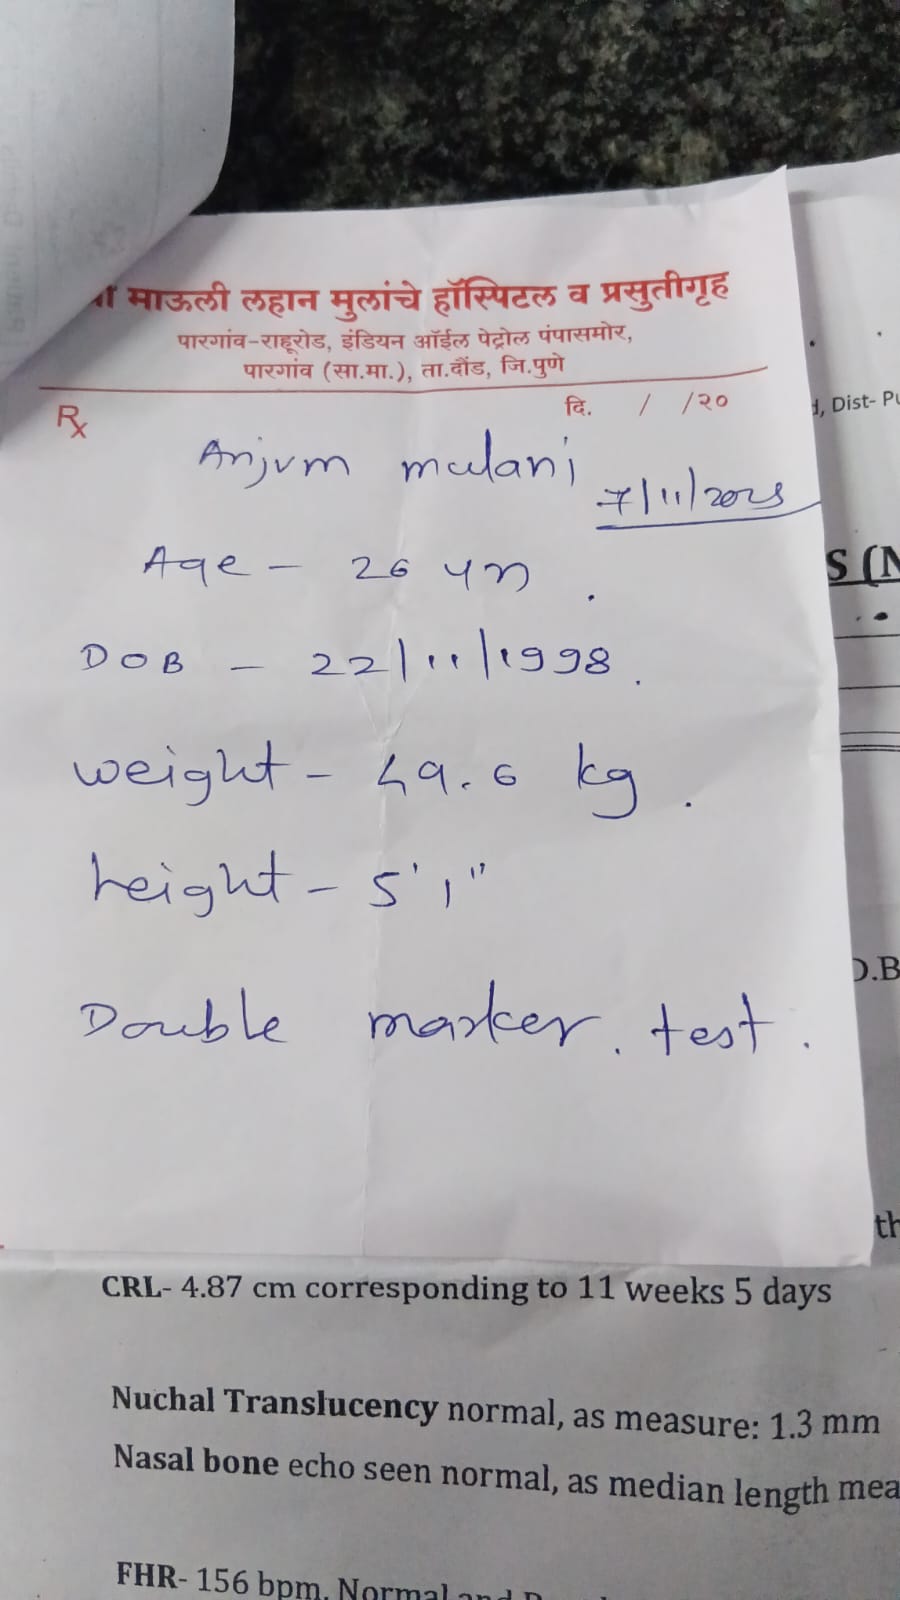 माऊली लहान मुलांचे हॉस्पिटल व प्रसुतीगृह
पारगांव-राहूरोड, इंडियन ऑईल पेट्रोल पंपासमोर,
पारगांव (सा.मा.), ता.दौंड, जि.पुणे
Rx
दि. / /२०
d, Dist- Pu
Anjum mulani
7/11/2025
Age - 26 yrs.
S (N
DOB - 22/11/1998.
weight - 49.6 kg.
height - 5'1"
D.B
Double marker. test.
th
CRL- 4.87 cm corresponding to 11 weeks 5 days
Nuchal Translucency normal, as measure: 1.3 mm
Nasal bone echo seen normal, as median length mea
FHR- 156 bpm, Normal and